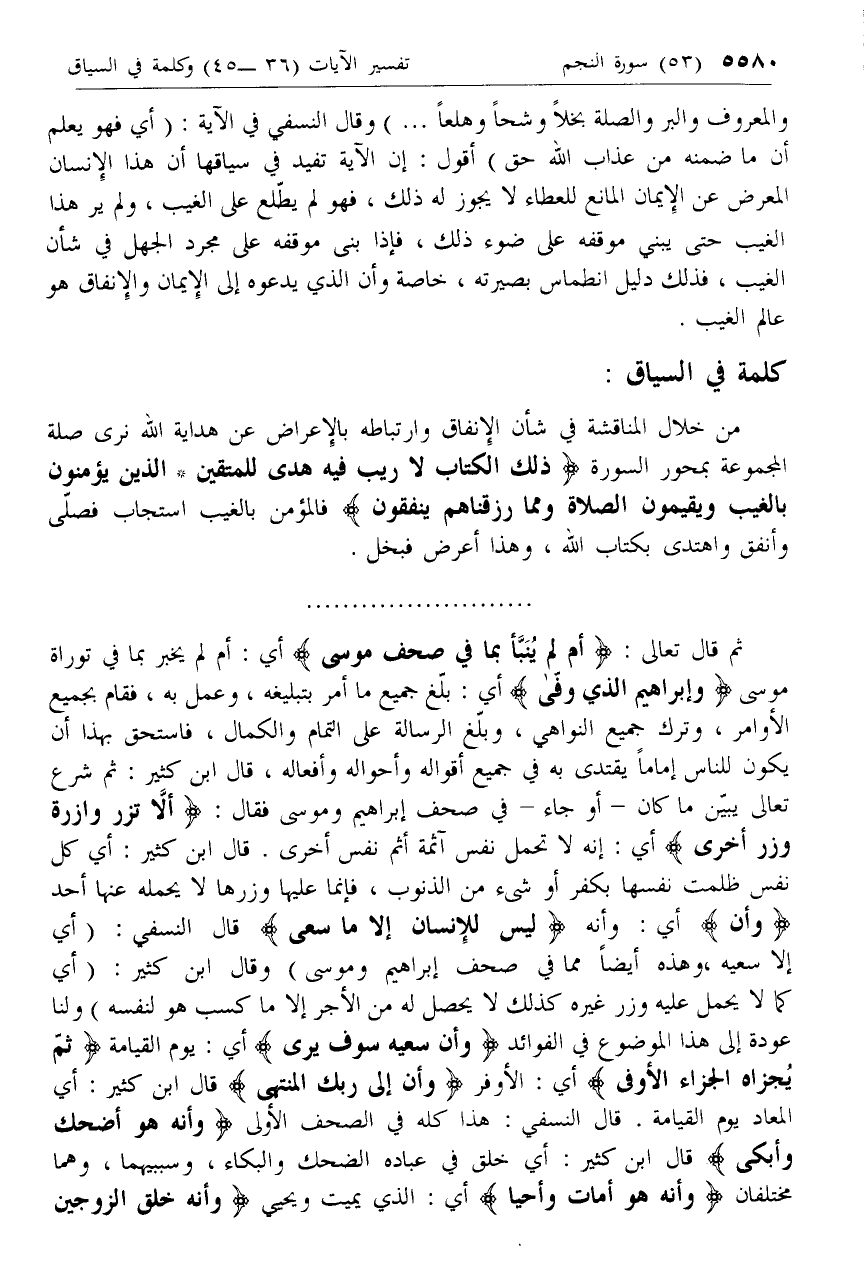 ٥٥٨٠ (٥٣) سورة النجم تفسير الآيات (٣٦ – ٤٥) وكلمة في السياق
والمعروف والبر والصلة بخلاً وشحاً وهلعاً ... ) وقال النسفي في الآية : ( أي فهو يعلم
أن ما ضمنه من عذاب الله حق ) أقول : إن الآية تفيد في سياقها أن هذا الإنسان
المعرض عن الإيمان المانع للعطاء لا يجوز له ذلك ، فهو لم يطّلع على الغيب ، ولم ير هذا
الغيب حتى يبني موقفه على ضوء ذلك ، فإذا بنى موقفه على مجرد الجهل في شأن
الغيب ، فذلك دليل انطماس بصيرته ، خاصة وأن الذي يدعوه إلى الإيمان والإنفاق هو
عالم الغيب .
كلمة في السياق :
من خلال المناقشة في شأن الإنفاق وارتباطه بالإعراض عن هداية الله نرى صلة
المجموعة بمحور السورة ﴿ ذلك الكتاب لا ريب فيه هدى للمتقين * الذين يؤمنون
بالغيب ويقيمون الصلاة ومما رزقناهم ينفقون ﴾ فالمؤمن بالغيب استجاب فصلّى
وأنفق واهتدى بكتاب الله ، وهذا أعرض فبخل .
.........................
ثم قال تعالى : ﴿ أم لم يُنَبَّأ بما في صحف موسى ﴾ أي : أم لم يخبر بما في توراة
موسى ﴿ وإبراهيم الذي وفّىٰ ﴾ أي : بلّغ جميع ما أمر بتبليغه ، وعمل به ، فقام بجميع
الأوامر ، وترك جميع النواهي ، وبلّغ الرسالة على التمام والكمال ، فاستحق بهذا أن
يكون للناس إماماً يقتدى به في جميع أقواله وأحواله وأفعاله ، قال ابن كثير : ثم شرع
تعالى يبيّن ما كان – أو جاء – في صحف إبراهيم وموسى فقال : ﴿ ألَّا تزر وازرة
وزر أخرى ﴾ أي : إنه لا تحمل نفس آثمة أثم نفس أخرى . قال ابن كثير : أي كل
نفس ظلمت نفسها بكفر أو شيء من الذنوب ، فإنما عليها وزرها لا يحمله عنها أحد
﴿ وأن ﴾ أي : وأنه ﴿ ليس للإنسان إلا ما سعى ﴾ قال النسفي : ( أي
إلا سعيه ،وهذه أيضاً مما في صحف إبراهيم وموسى ) وقال ابن كثير : ( أي
كما لا يحمل عليه وزر غيره كذلك لا يحصل له من الأجر إلا ما كسب هو لنفسه ) ولنا
عودة إلى هذا الموضوع في الفوائد ﴿ وأن سعيه سوف يرى ﴾ أي : يوم القيامة ﴿ ثمّ
يُجزاه الجزاء الأوفى ﴾ أي : الأوفر ﴿ وأن إلى ربك المنتهى ﴾ قال ابن كثير : أي
المعاد يوم القيامة . قال النسفي : هذا كله في الصحف الأولى ﴿ وأنه هو أضحك
وأبكى ﴾ قال ابن كثير : أي خلق في عباده الضحك والبكاء ، وسببيهما ، وهما
مختلفان ﴿ وأنه هو أمات وأحيا ﴾ أي : الذي يميت ويحيي ﴿ وأنه خلق الزوجين